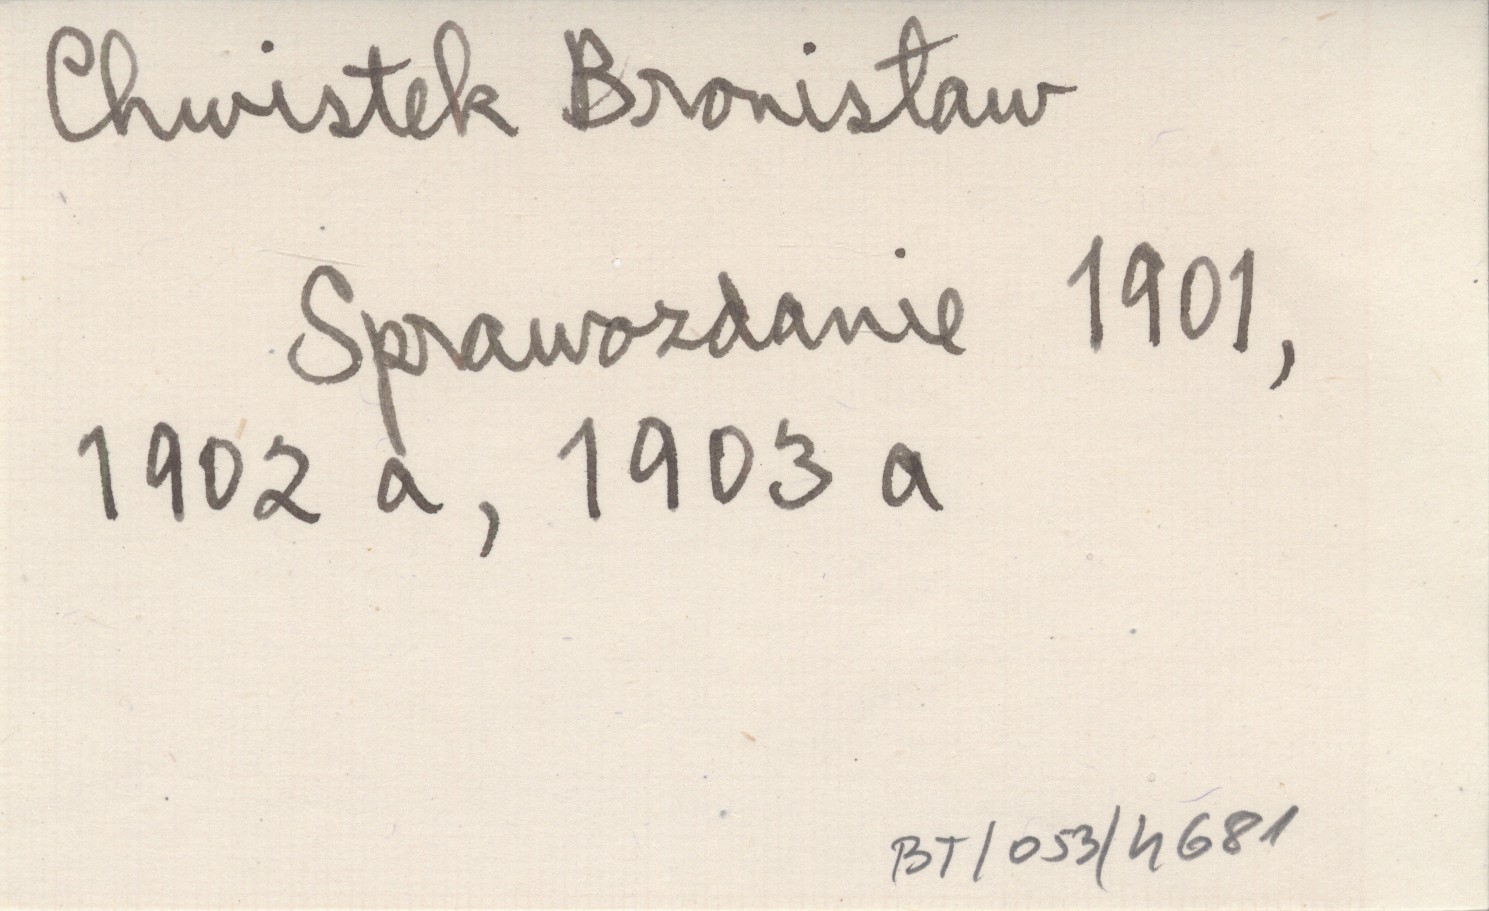 Chwistek Bronisław
Sprawozdanie 1901,
1902 a, 1903 a
BT/053/4681